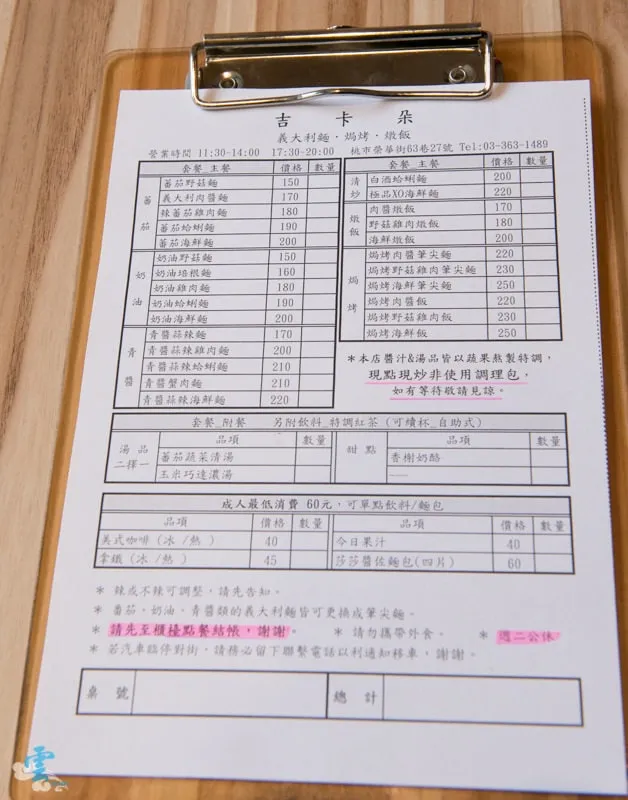 吉卡朵
義大利麵．焗烤．燉飯
營業時間 11:30-14:00 17:30-20:00 桃市榮華街63巷27號 Tel:03-363-1489
套餐_主餐 價格 數量
蕃茄
蕃茄野菇麵 150
義大利肉醬麵 170
辣蕃茄雞肉麵 180
蕃茄蛤蜊麵 190
蕃茄海鮮麵 200
奶油
奶油野菇麵 150
奶油培根麵 160
奶油雞肉麵 180
奶油蛤蜊麵 190
奶油海鮮麵 200
青醬
青醬蒜辣麵 170
青醬蒜辣雞肉麵 200
青醬蒜辣蛤蜊麵 210
青醬蟹肉麵 210
青醬蒜辣海鮮麵 220
套餐_主餐 價格 數量
清炒
白酒蛤蜊麵 200
極品XO海鮮麵 220
燉飯
肉醬燉飯 170
野菇雞肉燉飯 180
海鮮燉飯 200
焗烤
焗烤肉醬筆尖麵 220
焗烤野菇雞肉筆尖麵 230
焗烤海鮮筆尖麵 250
焗烤肉醬飯 220
焗烤野菇雞肉飯 230
焗烤海鮮飯 250
*本店醬汁&湯品皆以蔬果熬製特調，
現點現炒非使用調理包，
如有等待敬請見諒。
套餐_附餐 另附飲料_特調紅茶（可續杯_自助式）
湯品二擇一
品項 數量
蕃茄蔬菜清湯
玉米巧達濃湯
甜點
品項 數量
香榭奶酪
成人最低消費 60元，可單點飲料/麵包
品項 價格 數量 品項 價格 數量
美式咖啡（冰/熱） 40 今日果汁 40
拿鐵（冰/熱） 45 莎莎醬佐麵包(四片) 60
* 辣或不辣可調整，請先告知。
* 蕃茄、奶油、青醬類的義大利麵皆可更換成筆尖麵。
* 請先至櫃檯點餐結帳，謝謝。 * 請勿攜帶外食。 * 週二公休
* 若汽車臨停對街，請務必留下聯繫電話以利通知移車，謝謝。
桌號 總計
雲